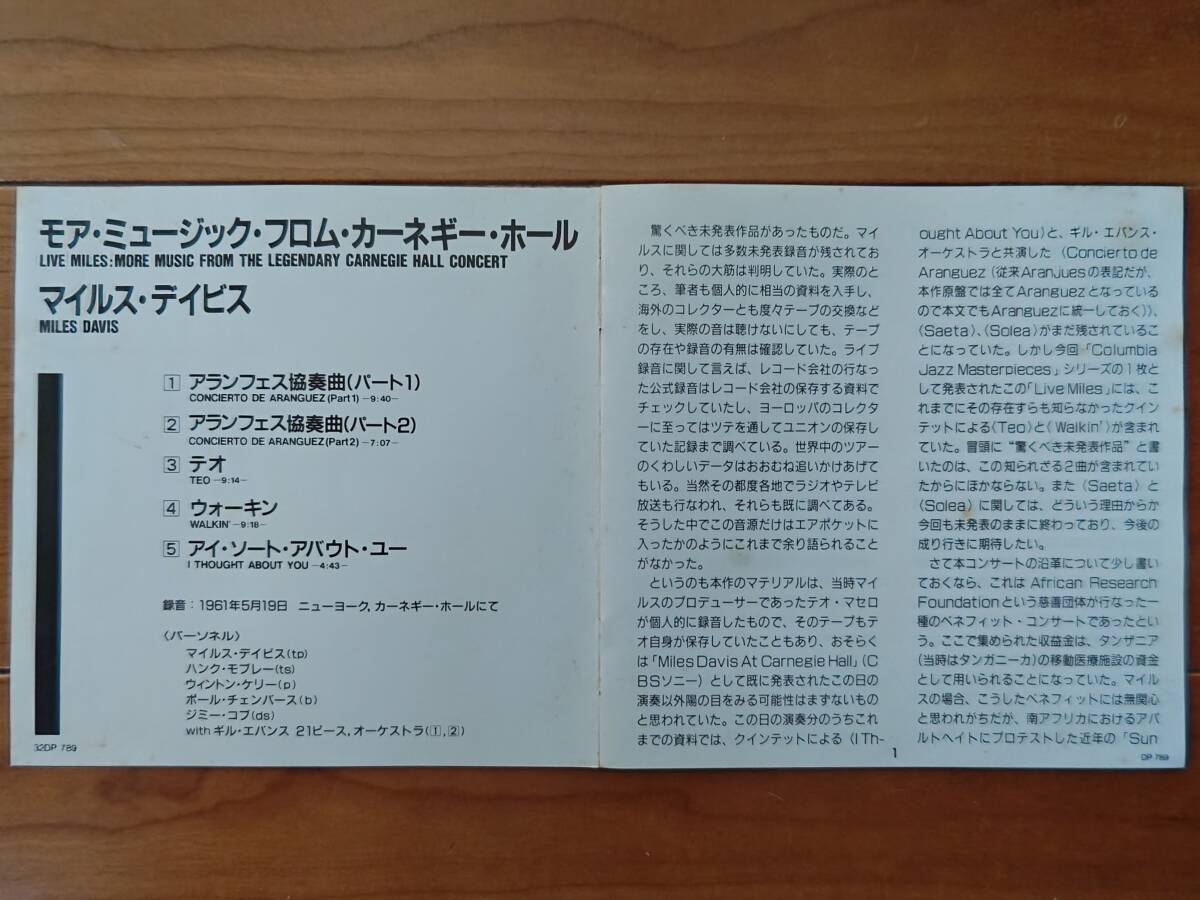 モア・ミュージック・フロム・カーネギー・ホール
LIVE MILES:MORE MUSIC FROM THE LEGENDARY CARNEGIE HALL CONCERT
マイルス・デイビス
MILES DAVIS
1 アランフェス協奏曲(パート1)
CONCIERTO DE ARANGUEZ(Part1) —9:40—
2 アランフェス協奏曲(パート2)
CONCIERTO DE ARANGUEZ(Part2) —7:07—
3 テオ
TEO —9:14—
4 ウォーキン
WALKIN' —9:18—
5 アイ・ソート・アバウト・ユー
I THOUGHT ABOUT YOU —4:43—
録音:1961年5月19日 ニューヨーク,カーネギー・ホールにて
〈パーソネル〉
マイルス・デイビス(tp)
ハンク・モブレー(ts)
ウィントン・ケリー(p)
ポール・チェンバース(b)
ジミー・コブ(ds)
with ギル・エバンス 21ピース,オーケストラ(1,2)
32DP 789
驚くべき未発表作品があったものだ。マイ
ルスに関しては多数未発表録音が残されてお
り、それらの大筋は判明していた。実際のと
ころ、筆者も個人的に相当の資料を入手し、
海外のコレクターとも度々テープの交換など
をし、実際の音は聴けないにしても、テープ
の存在や録音の有無は確認していた。ライブ
録音に関して言えば、レコード会社の行なっ
た公式録音はレコード会社の保存する資料で
チェックしていたし、ヨーロッパのコレクタ
ーに至ってはツテを通してユニオンの保存し
ていた記録まで調べている。世界中のツアー
のくわしいデータはおおむね追いかけあげて
もいる。当然その都度各地でラジオやテレビ
放送も行なわれ、それらも既に調べてある。
そうした中でこの音源だけはエアポケットに
入ったかのようにこれまで余り語られること
がなかった。
というのも本作のマテリアルは、当時マイ
ルスのプロデューサーであったテオ・マセロ
が個人的に録音したもので、そのテープもテ
オ自身が保存していたこともあり、おそらく
は「Miles Davis At Carnegie Hall」(C
BSソニー)として既に発表されたこの日の
演奏以外陽の目をみる可能性はまずないもの
と思われていた。この日の演奏分のうちこれ
までの資料では、クインテットによる〈I Th-
1
ought About You〉と、ギル・エバンス・
オーケストラと共演した〈Concierto de
Aranguez(従来Aranjuesの表記だが、
本作原盤では全てAranguezとなっている
ので本文でもAranguezに統一しておく)〉、
〈Saeta〉、〈Solea〉がまだ残されているこ
とになっていた。しかし今回「Columbia
Jazz Masterpieces」シリーズの1枚と
して発表されたこの「Live Miles」には、こ
れまでにその存在すらも知らなかったクイン
テットによる〈Teo〉と〈Walkin'〉が含まれ
ていた。冒頭に“驚くべき未発表作品”と書
いたのは、この知られざる2曲が含まれてい
たからにほかならない。また〈Saeta〉と
〈Solea〉に関しては、どういう理由からか
今回も未発表のままに終わっており、今後の
成り行きに期待したい。
さて本コンサートの沿革について少し書い
ておくなら、これは African Research
Foundationという慈善団体が行なった一
種のベネフィット・コンサートであったとい
う。ここで集められた収益金は、タンザニア
(当時はタンガニーカ)の移動医療施設の資金
として用いられることになっていた。マイル
スの場合、こうしたベネフィットには無関心
と思われがちだが、南アフリカにおけるアパ
ルトヘイトにプロテストした近年の「Sun
DP 789